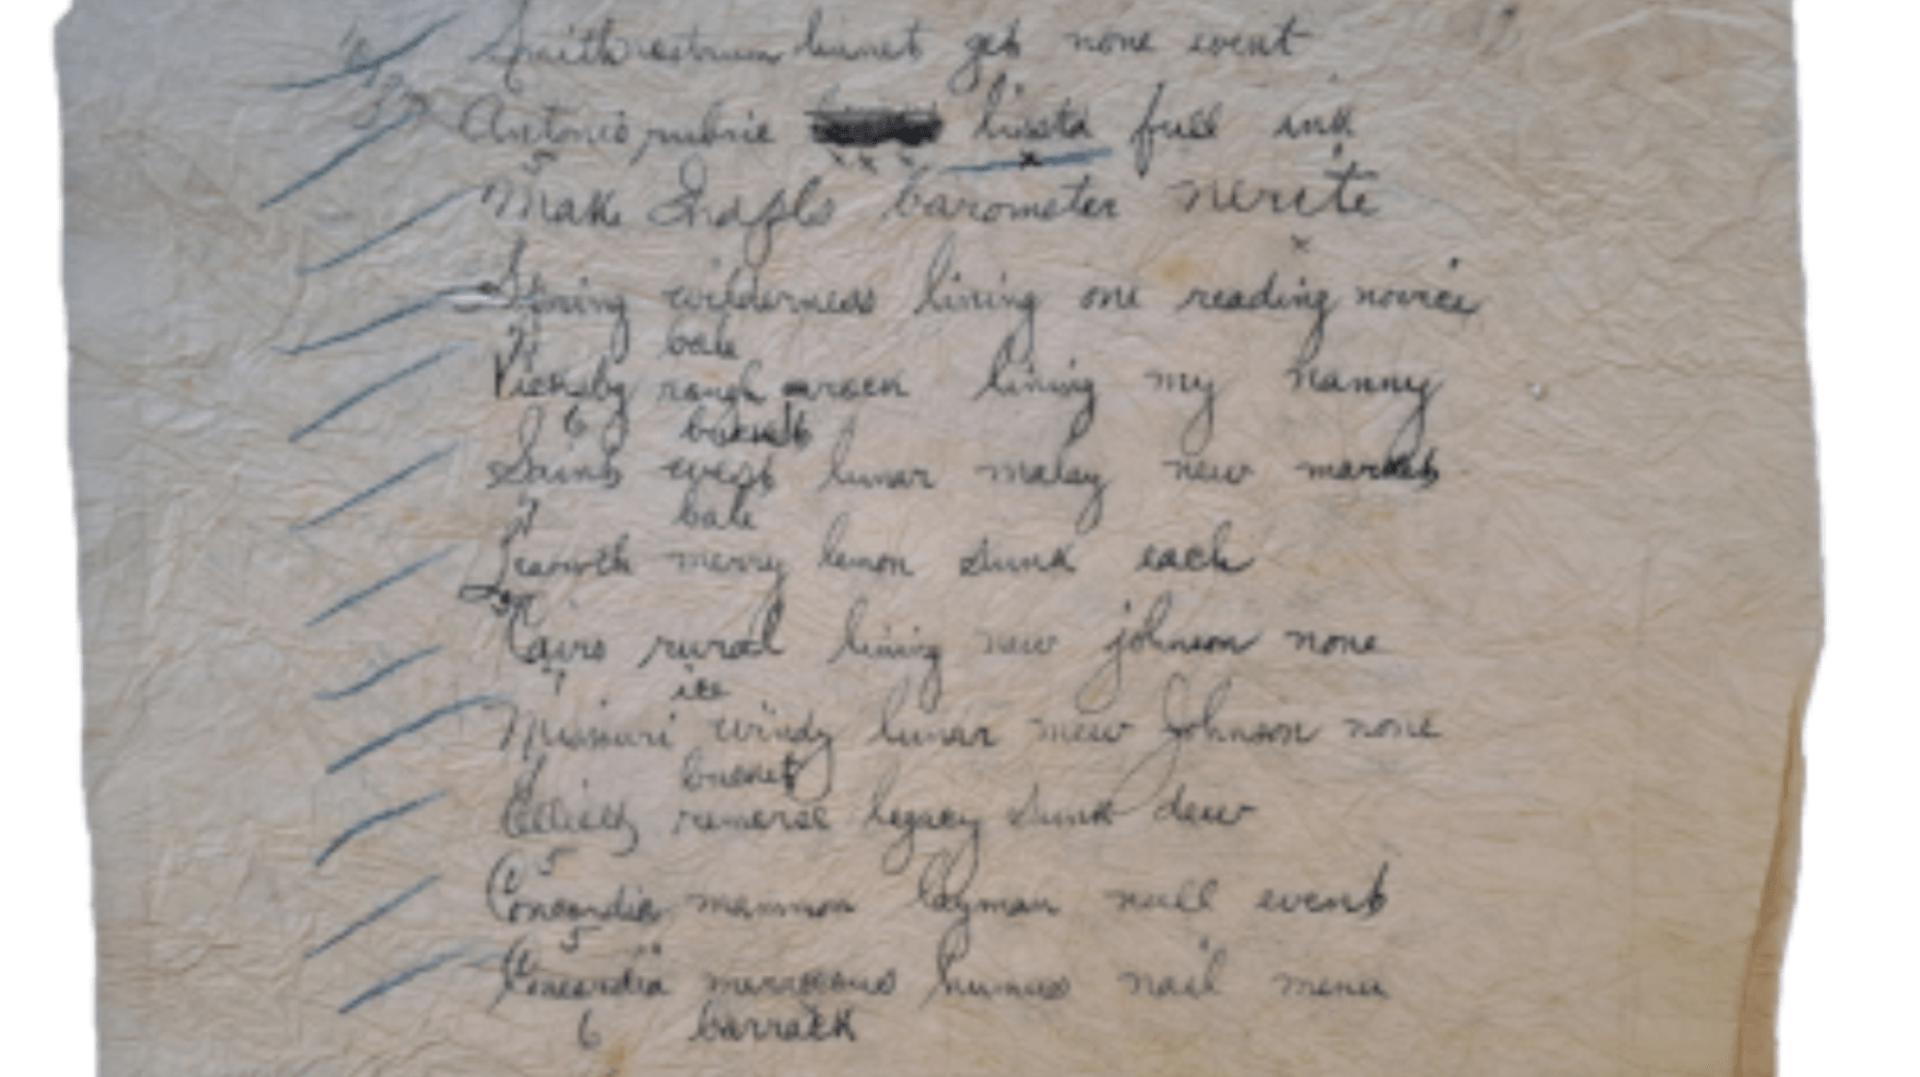 Smith nostrum linnet get none event
Antonio rubric lista full ink
5
Make Snaffle barometer nerite
Spring wilderness lining one reading novice
7 bale
Vicksbg rough rack lining my nanny
6 bucket
Saint west lunar malay new market
7 bale
merry lemon sunk each
Cairo rural lining new johnson none
7 ice
Missouri windy lunar mew Johnson none
bucket
Elliott remorse legacy sunk dew
5
Concordia mammon layman null event
5
Concordia humus nail menu
6 barrack